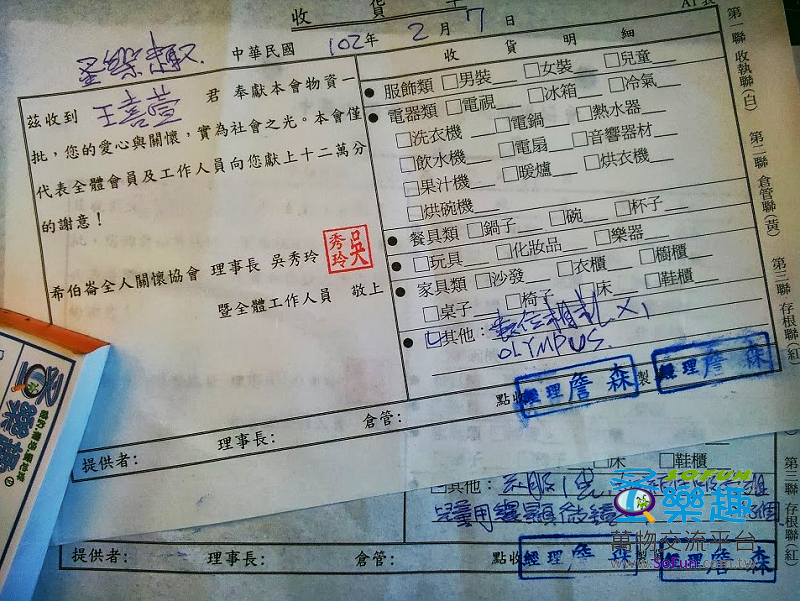 收貨單
A1表
中華民國 102年 2月 7日
茲收到 王喜萱 君 奉獻本會物資一
批，您的愛心與關懷，實為社會之光。本會僅
代表全體會員及工作人員向您獻上十二萬分
的謝意！
希伯崙全人關懷協會 理事長 吳秀玲
吳秀玲
暨全體工作人員 敬上
收貨明細
● 服飾類 □男裝 □女裝 □兒童
● 電器類 □電視 □冰箱 □冷氣
□洗衣機 □電鍋 □熱水器
□飲水機 □電扇 □音響器材
□果汁機 □暖爐 □烘衣機
□烘碗機
● 餐具類 □鍋子 □碗 □杯子
● □玩具 □化妝品 □樂器
● 家具類 □沙發 □衣櫃 □櫥櫃
□桌子 □椅子 □床 □鞋櫃
● □其他：數位相機 X1
OLYMPUS
提供者： 理事長： 倉管： 點收 製
經理 詹森
經理 詹森
第一聯 收執聯(白) 第二聯 倉管聯(黃) 第三聯 存根聯(紅)
□床 □鞋櫃
□其他：
兒童用
提供者： 理事長： 倉管： 點收 製
經理 詹森
經理 詹森
第三聯 存根聯(紅)
樂趣
SOFUN
樂趣
萬物交流平台
www.SoFun.com.tw